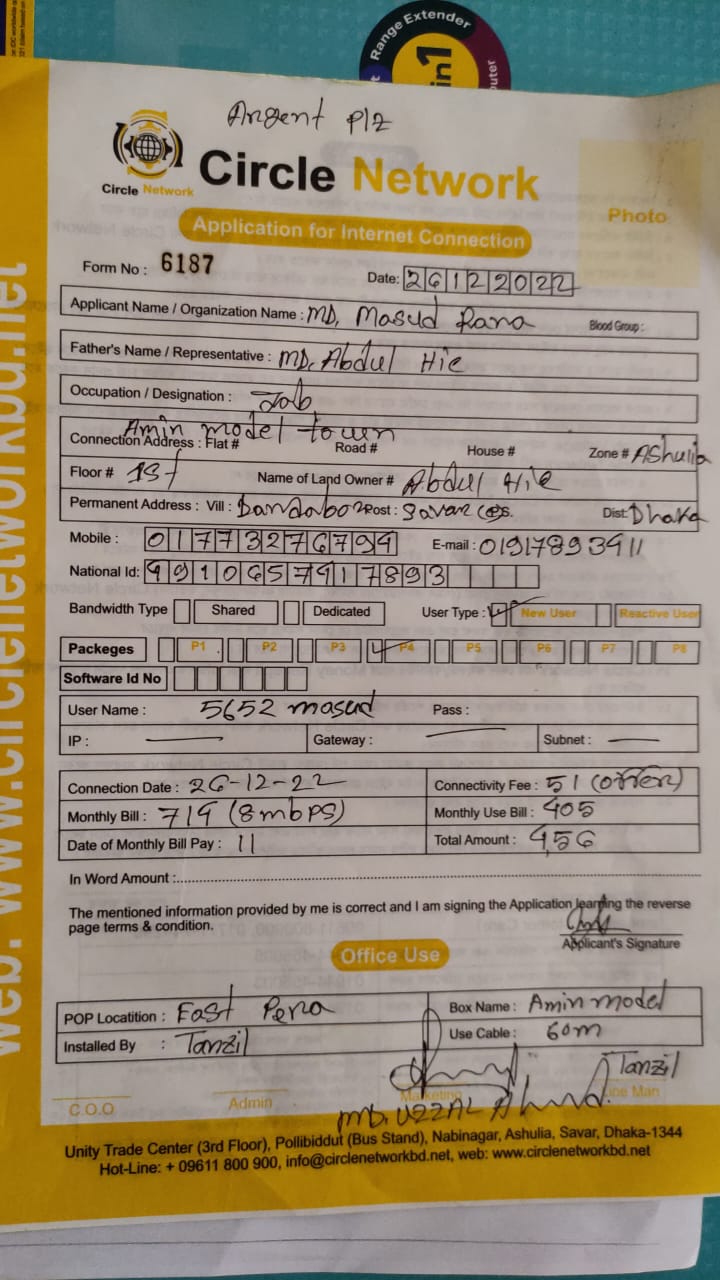 Range Extender
in1
Argent Plz
Circle Network
Circle Network
Photo
Application for Internet Connection
Form No : 6187
Date: 26122022
Applicant Name / Organization Name : MD, Masud Rana Blood Group :
Father's Name / Representative : MD. Abdul Hie
Occupation / Designation : Job
Amin model town
Connection Address : Flat # Road # House # Zone # AShulia
Floor # 1st Name of Land Owner # Abdul Hie
Permanent Address : Vill : Post : Savar Dist: Dhaka
Mobile : 01773276794 E-mail : 01917893911
National Id: 9910657917893
Bandwidth Type Shared Dedicated User Type : New User Reactive User
Packeges P1 P2 P3 P4 P5 P6 P7 P8
Software Id No
User Name : 5652 masud Pass :
IP : — Gateway : — Subnet : —
Connection Date : 26-12-22 Connectivity Fee : 51 (offer)
Monthly Bill : 714 (8mbps) Monthly Use Bill : 405
Date of Monthly Bill Pay : 11 Total Amount : 456
In Word Amount :
The mentioned information provided by me is correct and I am signing the Application learning the reverse
page terms & condition.
Applicant's Signature
Office Use
POP Locatition : East Pena Box Name : Amin model
Installed By : Tanzil Use Cable : 60m
Tanzil
C.O.O Admin Marketing Line Man
MD. UZZAL Ahmd.
Unity Trade Center (3rd Floor), Pollibiddut (Bus Stand), Nabinagar, Ashulia, Savar, Dhaka-1344
Hot-Line: + 09611 800 900, info@circlenetworkbd.net, web: www.circlenetworkbd.net
web: www.circlenetworkbd.net